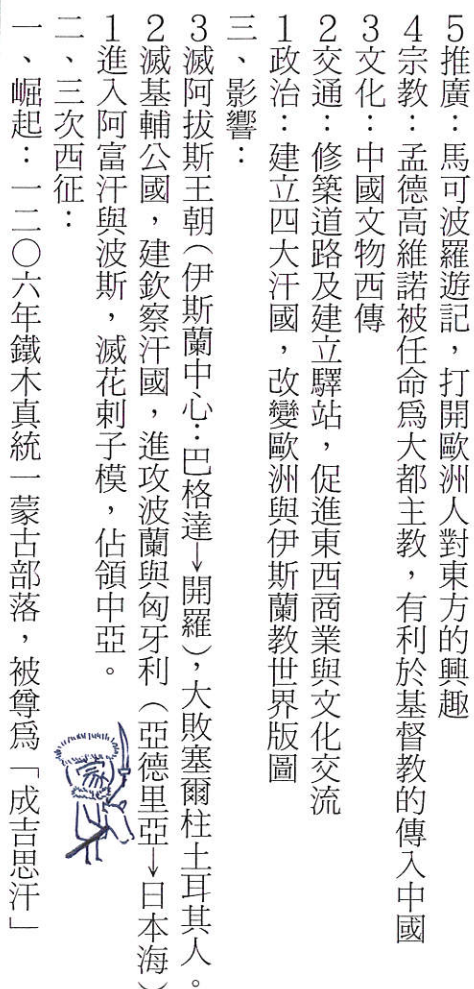 一、崛起：一二〇六年鐵木真統一蒙古部落，被尊為「成吉思汗」
二、三次西征：
1進入阿富汗與波斯，滅花剌子模，佔領中亞。
2滅基輔公國，建欽察汗國，進攻波蘭與匈牙利（亞德里亞→日本海）
3滅阿拔斯王朝（伊斯蘭中心：巴格達→開羅），大敗塞爾柱土耳其人。
三、影響：
1政治：建立四大汗國，改變歐洲與伊斯蘭教世界版圖
2交通：修築道路及建立驛站，促進東西商業與文化交流
3文化：中國文物西傳
4宗教：孟德高維諾被任命為大都主教，有利於基督教的傳入中國
5推廣：馬可波羅遊記，打開歐洲人對東方的興趣
蒙